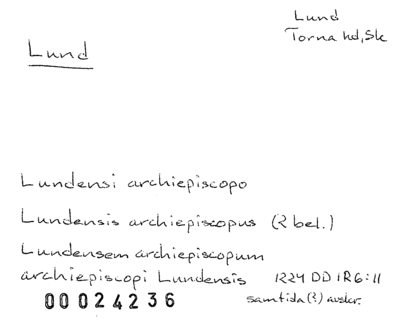 Lund
Torna hd, Sk
Lund
Lundensi archiepiscopo
Lundensis archiepiscopus (2 bel.)
Lundensem archiepiscopum
archiepiscopi Lundensis 1224 DD 1R6:11
samtida(?) avskr.
00024236